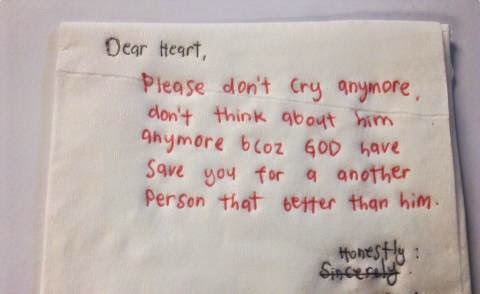 Dear Heart,
Please don't cry anymore,
don't think about him
anymore bcoz GOD have
save you for a another
person that better than him.
Honestly :
Sincerely